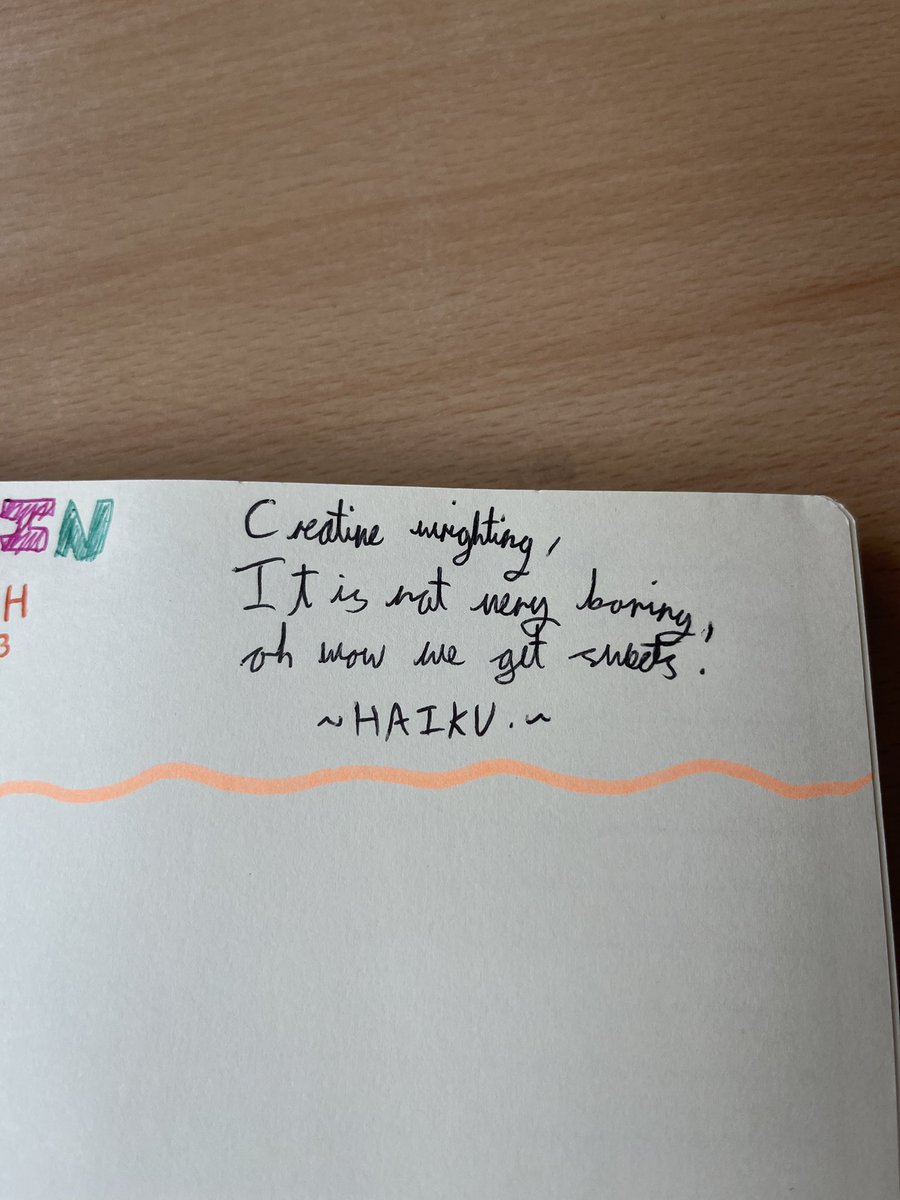 IN
H
3
Creative wrighting,
It is not very boring,
oh wow we get sweets.
~HAIKU.~